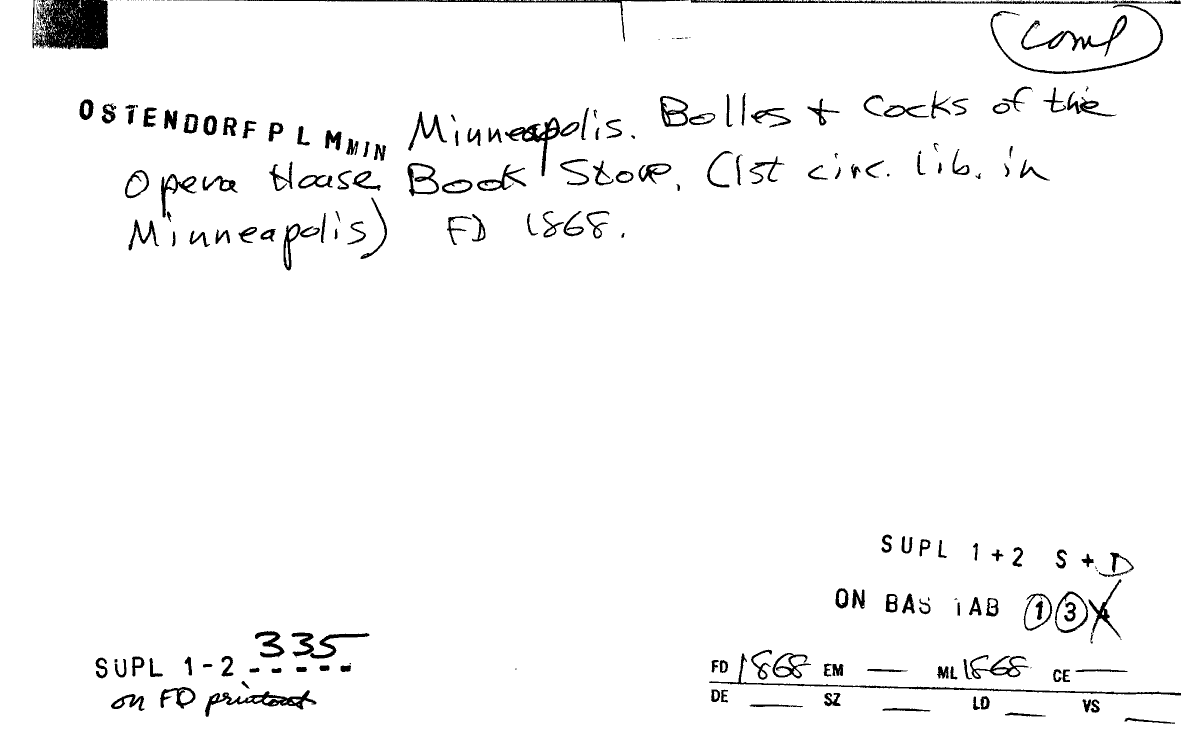 comp
OSTENDORF P L M MIN Minneapolis. Bolles + Cocks of the
Opera House Book Store. (1st circ. lib. in
Minneapolis) FD 1868.
SUPL 1+2 S + D
ON BAS TAB 1 3
SUPL 1-2 335
on FD printout
FD 1868 EM — ML 1868 CE —
DE ___ SZ ___ LD ___ VS ___